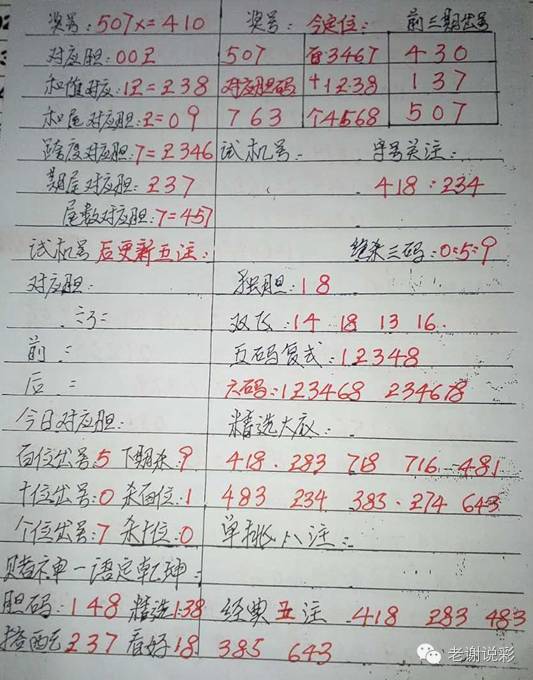 奖号:507x=410 奖号: 今定位: 前三期出号
对应胆:00Z 507 百3467 430
和值对应:12=238 对应胆码 十1238 137
和尾对应胆:2=09 763 个4568 507
跨度对应胆:7=2346 试机号: 字号关注:
期尾对应胆:237 418:234
尾数对应胆:7=457
试机号后更新五注: 绝杀三码:0:5:9
对应胆: 独胆:18
双飞:14 18 13 16
前:= 五码复式:12348
后:= 六码:123468 234678
今日对应胆: 精选大底:
百位出号:5 下期杀:9 418.283 718 716 481
十位出号:0 杀百位:1 483 234 383.274 643
个位出号:7 杀十位:0 单挑八注:
赌神一语定乾坤:
胆码:148 精选138 经典五注 418 283 483
搭配237 看好18 385 643
老谢说彩